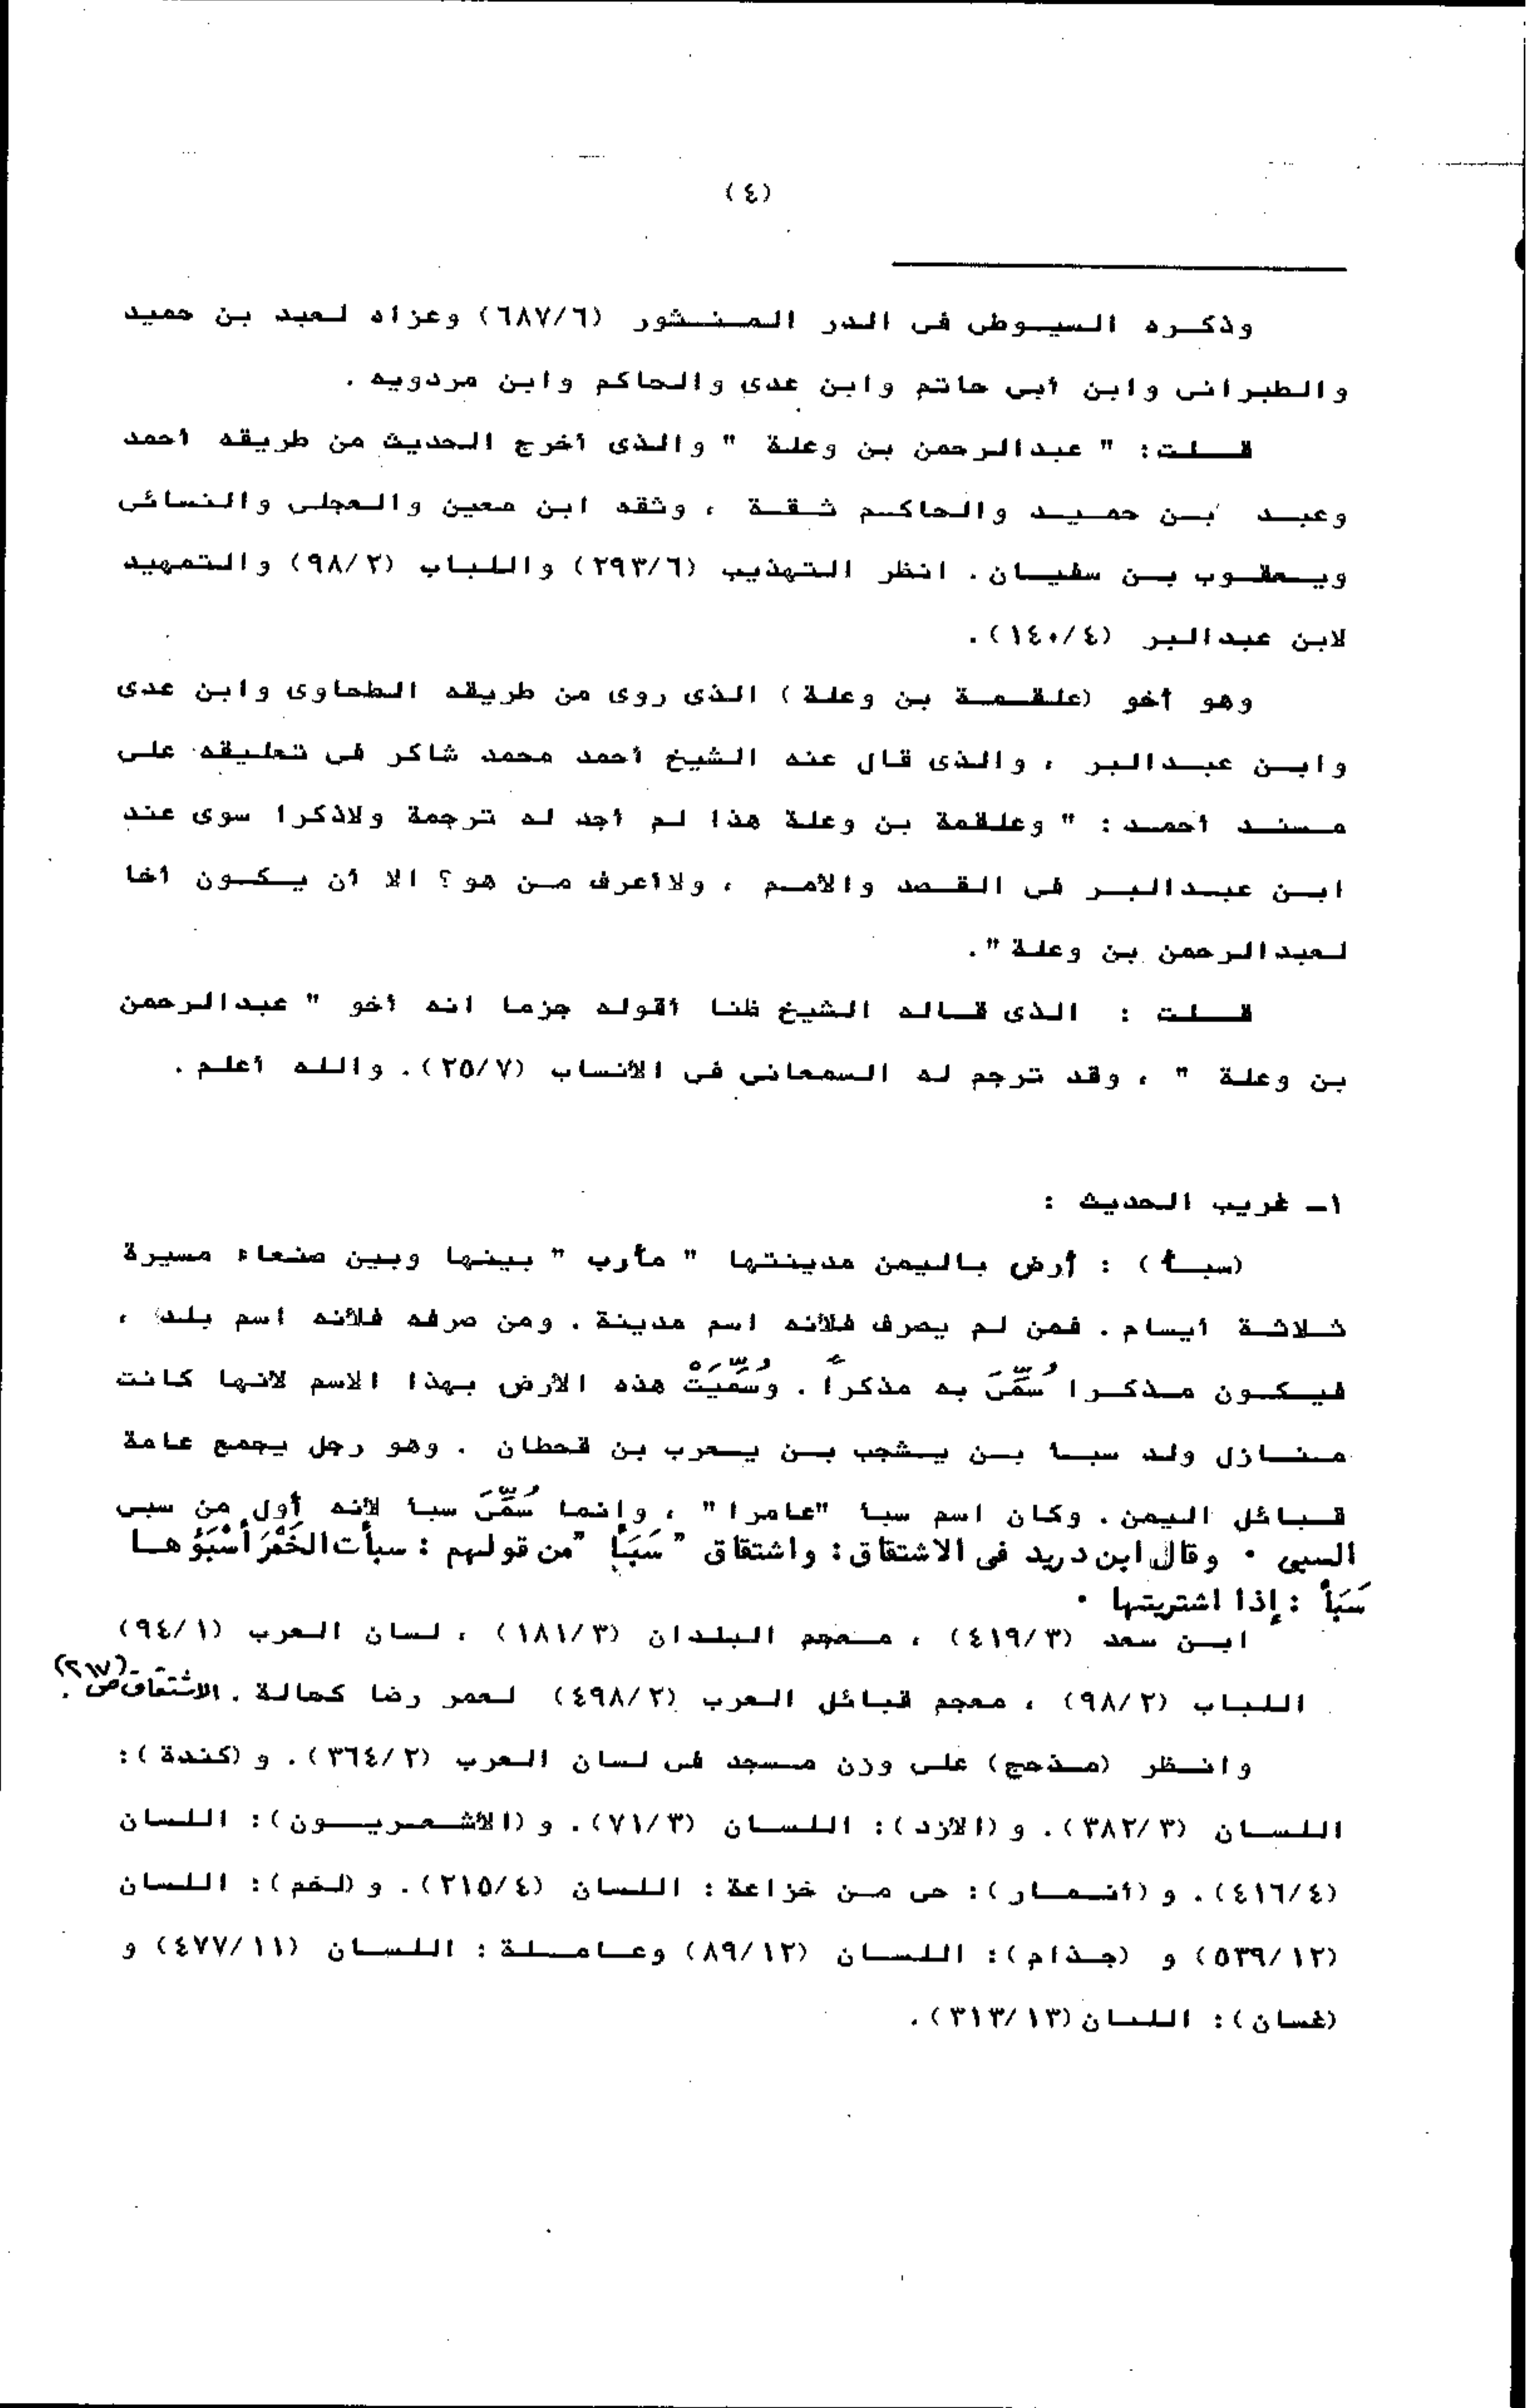 (٤)
وذكره السيوطى فى الدر المنثور (٦٨٧/٦) وعزاه لعبد بن حميد
والطبرانى وابن أبى حاتم وابن عدى والحاكم وابن مردويه .
قلت : " عبدالرحمن بن وعلة " والذى أخرج الحديث من طريقه أحمد
وعبد بن حميد والحاكم ثقة ، وثقه ابن معين والعجلى والنسائى
ويعقوب بن سفيان . انظر التهذيب (٢٩٣/٦) واللباب (٩٨/٢) والتمهيد
لابن عبدالبر (١٤٠/٤) .
وهو أخو (علقمة بن وعلة) الذى روى من طريقه الطحاوى وابن عدى
وابن عبدالبر ، والذى قال عنه الشيخ أحمد محمد شاكر فى تعليقه على
مسند أحمد : " وعلقمة بن وعلة هذا لم أجد له ترجمة ولاذكرا سوى عند
ابن عبدالبر فى القصد والأمم ، ولاأعرف من هو ؟ الا أن يكون أخا
لعبدالرحمن بن وعلة " .
قلت : الذى قاله الشيخ ظنا أقوله جزما انه أخو " عبدالرحمن
بن وعلة " ، وقد ترجم له السمعانى فى الأنساب (٢٥/٧) . والله أعلم .
١ـ غريب الحديث :
(سبأ) : أرض باليمن مدينتها " مأرب " بينها وبين صنعاء مسيرة
ثلاثة أيسام . فمن لم يصرف فلأنه اسم مدينة . ومن صرفه فلأنه اسم بلد ،
فيكون مذكرا سُمِّىَ به مذكراً . وسُمِّيَتْ هذه الأرض بهذا الاسم لانها كانت
منازل ولد سبأ بن يشجب بن يعرب بن قحطان . وهو رجل يجمع عامة
قبائل اليمن . وكان اسم سبأ "عامرا" ، وإنما سُمِّىَ سبأ لأنه أول من سبى
السبى . وقال ابن دريد فى الاشتقاق : واشتقاق " سَبَأٍ " من قولهم : سبأت الخَمْرَ أَسْبَؤُها
سَبَأً : إذا اشتريتها .
ابن سعد (٤١٩/٣) ، معجم البلدان (١٨١/٣) ، لسان العرب (٩٤/١)
اللباب (٩٨/٢) ، معجم قبائل العرب (٤٩٨/٢) لعمر رضا كحالة . الاشتقاق ص .
وانظر (مذحج) على وزن مسجد فى لسان العرب (٣٦٤/٢) . و (كندة) :
اللسان (٣٨٢/٣) . و (الازد) : اللسان (٧١/٣) . و (الأشعريون) : اللسان
(٤١٦/٤) . و (أنمار) : حى من خزاعة : اللسان (٢١٥/٤) . و (لخم) : اللسان
(٥٣٩/١٢) و (جذام) : اللسان (٨٩/١٢) وعاملة : اللسان (٤٧٧/١١) و
(غسان) : اللسان (٣١٣/١٣) .